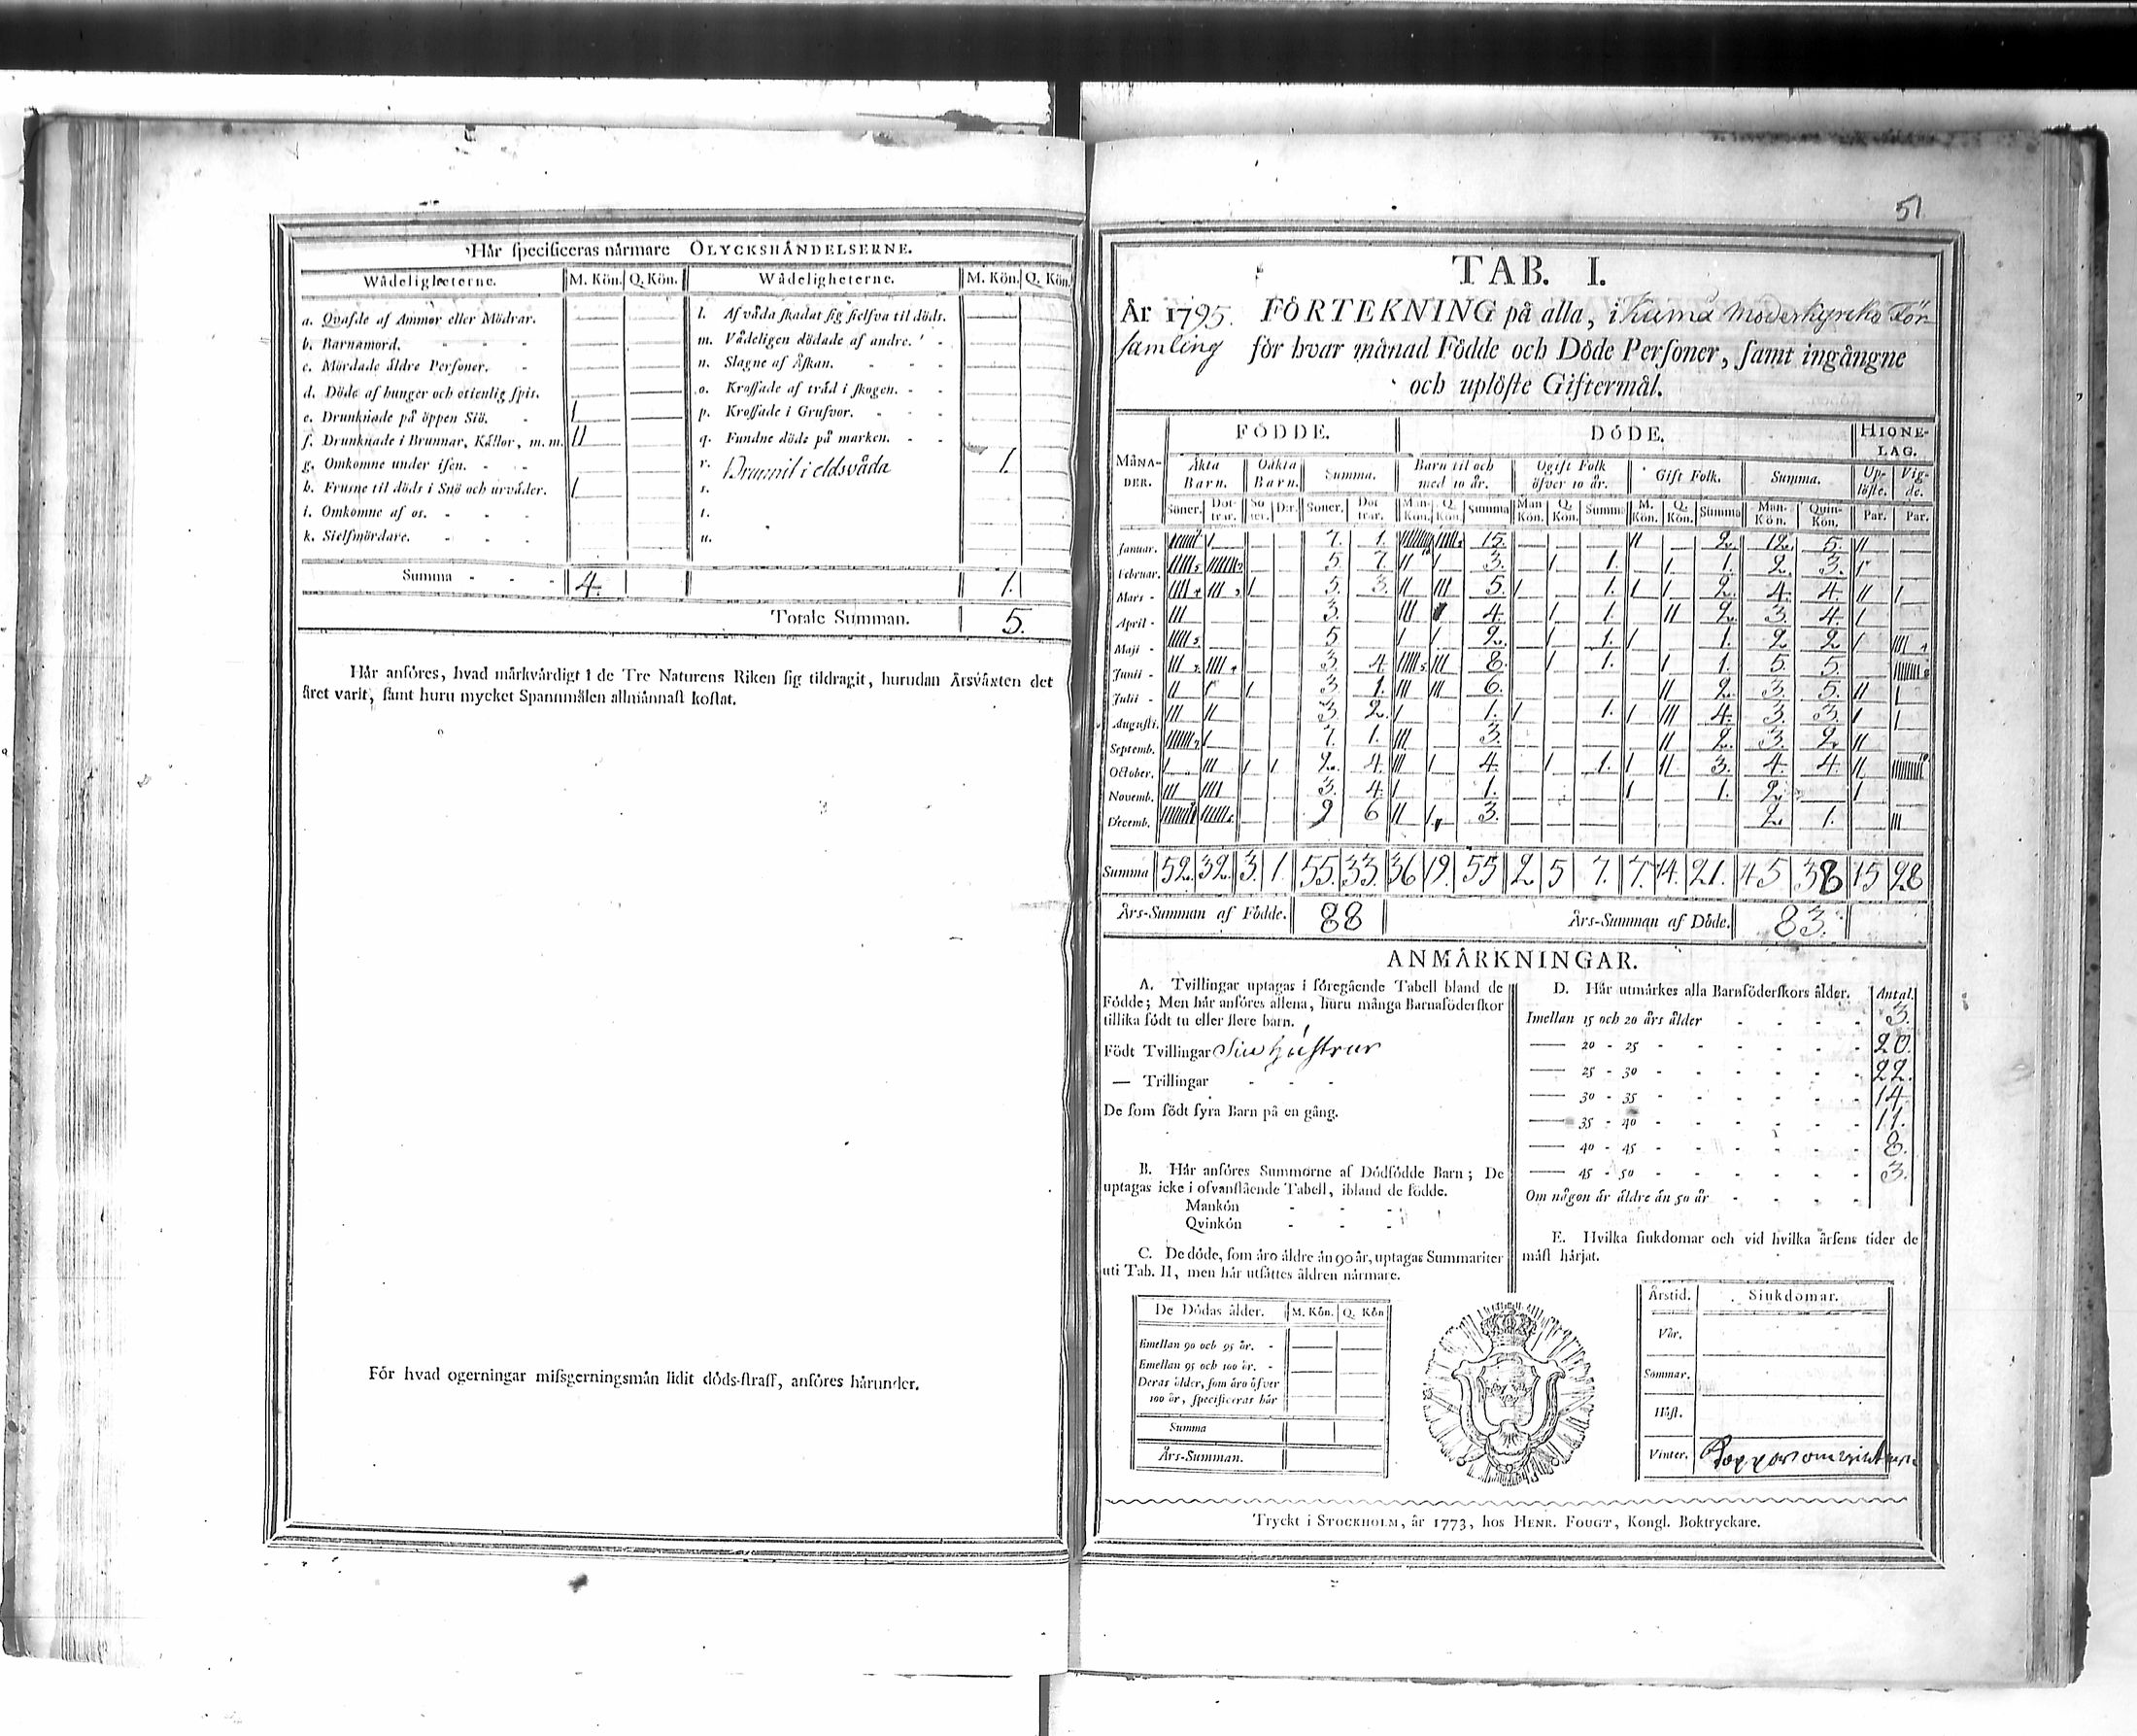 Här specificeras närmare OLYCKSHÄNDELSERNE.
Wådeligheterne. M. Kön. Q. Kön. Wådeligheterne. M. Kön. Q. Kön.
a. Qvafde af Ammor eller Mödrar. l. Af våda skadat sig sielfva til döds.
b. Barnamord. m. Vådeligen dödade af andre.
c. Mördade äldre Personer. n. Slagne af Åskan.
d. Döde af hunger och otienlig spis. o. Krossade af träd i skogen.
e. Drunknade på öppen Siö. I p. Krossade i Grufvor.
f. Drunknade i Brunnar, Källor, m. m. II q. Fundne döde på marken.
g. Omkomne under isen. r. Brunnit i eldsvåda 1.
h. Frusne til döds i Snö och urväder. I s.
i. Omkomne af os. t.
k. Sielfmördare. u.
Summa 4. 1.
Totale Summan. 5.
Här anföres, hvad märkvärdigt i de Tre Naturens Riken sig tildragit, hurudan Årsväxten det
året varit, samt huru mycket Spannmålen allmännast kostat.
För hvad ogerningar missgerningsmän lidit döds-straff, anföres härunder.
51
TAB. I.
År 1795. FÖRTEKNING på alla, i Kumla Moderkyrko För
samling för hvar månad Födde och Döde Personer, samt ingångne
och uplöste Giftermål.
MÅNADER. FÖDDE. DÖDE. HIONELAG.
Äkta Barn. Oäkta Barn. Summa. Barn til och med 10 år. Ogift Folk öfver 10 år. Gift Folk. Summa. Up-löste. Vig-de.
Söner. Dot-trar. So-ner. D:r. Söner. Dot-trar. Man-Kön. Q. Kön. Summa Man Kön. Q. Kön. Summa M. Kön. Q. Kön. Summa Man-Kön. Quin-Kön. Par. Par.
Januar. 7. 1. 15. 2. 12. 5.
Februar. 5. 7. 3. 1. 1. 2. 3.
Mars 5. 3. 5. 1. 2. 4. 4.
April 3. 4. 1. 2. 3. 4.
Maji 5 2. 1. 1. 2 2
Junii 3. 4. 8. 1. 1. 5. 5.
Julii 3. 1. 6. 2. 3. 5.
Augusti. 3 2. 1. 1. 4. 3. 3.
Septemb. 7. 1. 3. 2. 3. 2.
October. 2. 4. 4. 1. 3. 4. 4.
Novemb. 3. 4. 1. 1. 2.
Decemb. 9 6 3. 2. 1.
Summa 52. 32. 3. 1. 55. 33. 36 19. 55 2 5 7. 7. 14. 21. 45 38 15 28
Års-Summan af Födde. 88 Års-Summan af Döde. 83.
ANMÄRKNINGAR.
A. Tvillingar uptagas i föregående Tabell bland de
Födde; Men här anföres allena, huru många Barnaföderskor
tillika födt tu eller flere barn.
Födt Tvillingar hustrur
— Trillingar
De som födt fyra Barn på en gång.
B. Här anföres Summorne af Dödfödde Barn; De
uptagas icke i ofvanstående Tabell, ibland de födde.
Mankön
Qvinkön
C. De döde, som äro äldre än 90 år, uptagas Summariter
uti Tab. II, men här utsättes åldren närmare.
De Dödas ålder. M. Kön. Q. Kön
Emellan 90 och 95 år.
Emellan 95 och 100 år.
Deras ålder, som äro öfver
100 år, specificeras här
Summa
Års-Summan.
D. Här utmärkes alla Barnföderskors ålder. Antal.
Imellan 15 och 20 års ålder 3.
— 20 - 25 20.
— 25 - 30 22.
— 30 - 35 14
— 35 - 40 11.
— 40 - 45 8.
— 45 - 50 3.
Om någon är äldre än 50 år
E. Hvilka siukdomar och vid hvilka årsens tider de
mäst härjat.
Årstid. Siukdomar.
Vår.
Sommar.
Höst.
Vinter.
Tryckt i STOCKHOLM, år 1773, hos HENR. FOUGT, Kongl. Boktryckare.